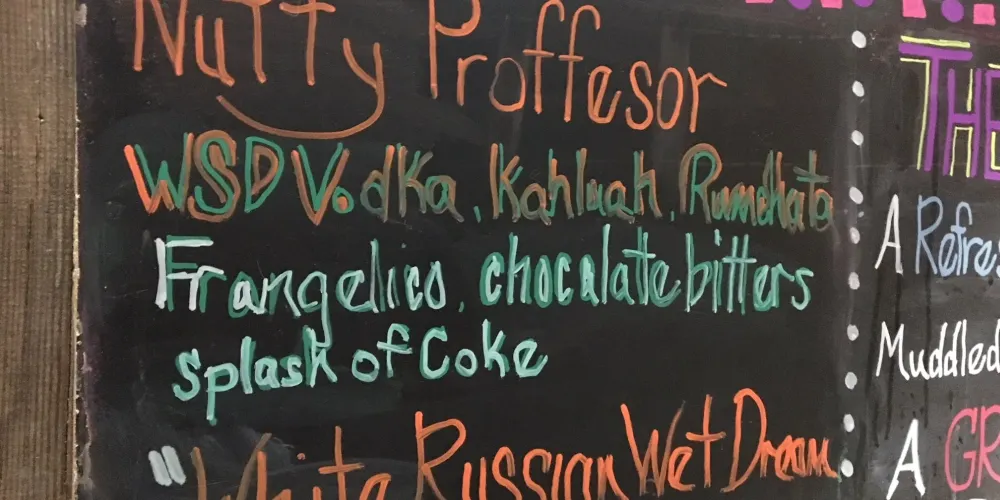 Nutty Proffesor
WSD Vodka, Kahluah, Rumchata
Frangelico, chocalate bitters
splash of Coke
"White Russian Wet Dream
THE
A Refre
Muddled
A GR